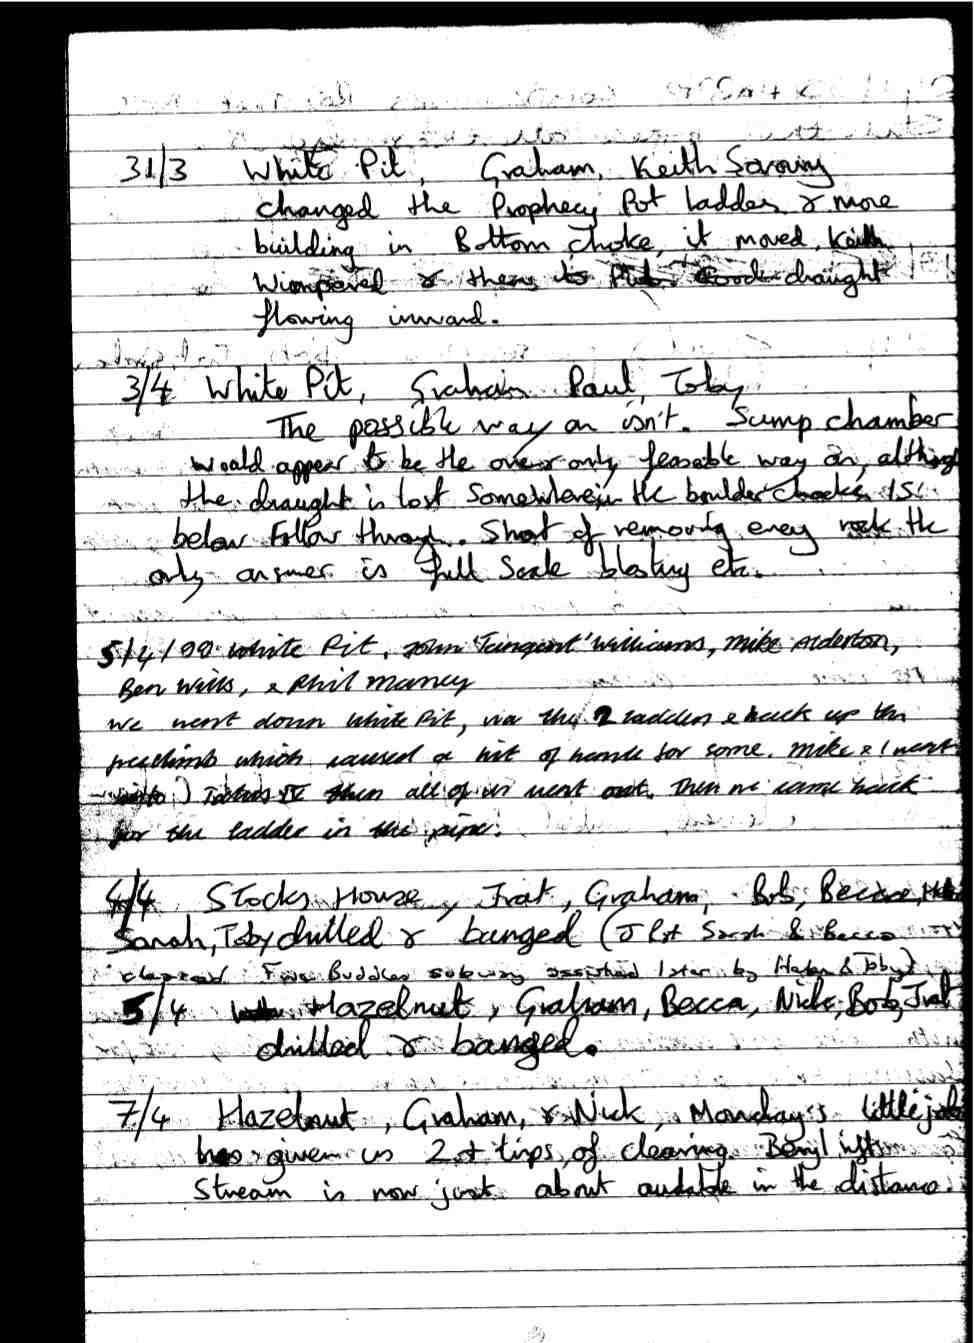 31/3 White Pit, Graham, Keith
changed the Prophecy Pot ladder & more
building in Bottom Choke, it moved, Keith
Wimpered & then to Pub. Good draught
flowing inward.
3/4 White Pit, Graham Paul, Toby
The possible way on isn't. Sump chamber
would appear to be the only feasable way on, although
the draught is lost Somewhere in the boulder chocks
below Follow through. Short of removing every rock the
only answer is full Scale blasting etc.
5/4/99 White Pit, John 'Tangent' Williams, Mike Alderton,
Ben Wills, & Phil Maney
We went down White Pit, via the 2 ladders & back up the
freeclimb which caused a bit of for some. Mike & I went
into Talus IV then all of us went out. Then we came back
for the ladder in the pipe.
4/4 Stocks House, Trat, Graham, Bob, Becca,
Sarah, Toby drilled & banged ( Sarah & Becca
cleared Five Buddles assisted later by Helen & Toby)
5/4 Hazelnut, Graham, Becca, Nick, Bob, Trat
drilled & banged.
7/4 Hazelnut, Graham, & Nick, Monday's little job
has given us 2 of clearing.
Stream is now just about audable in the distance.